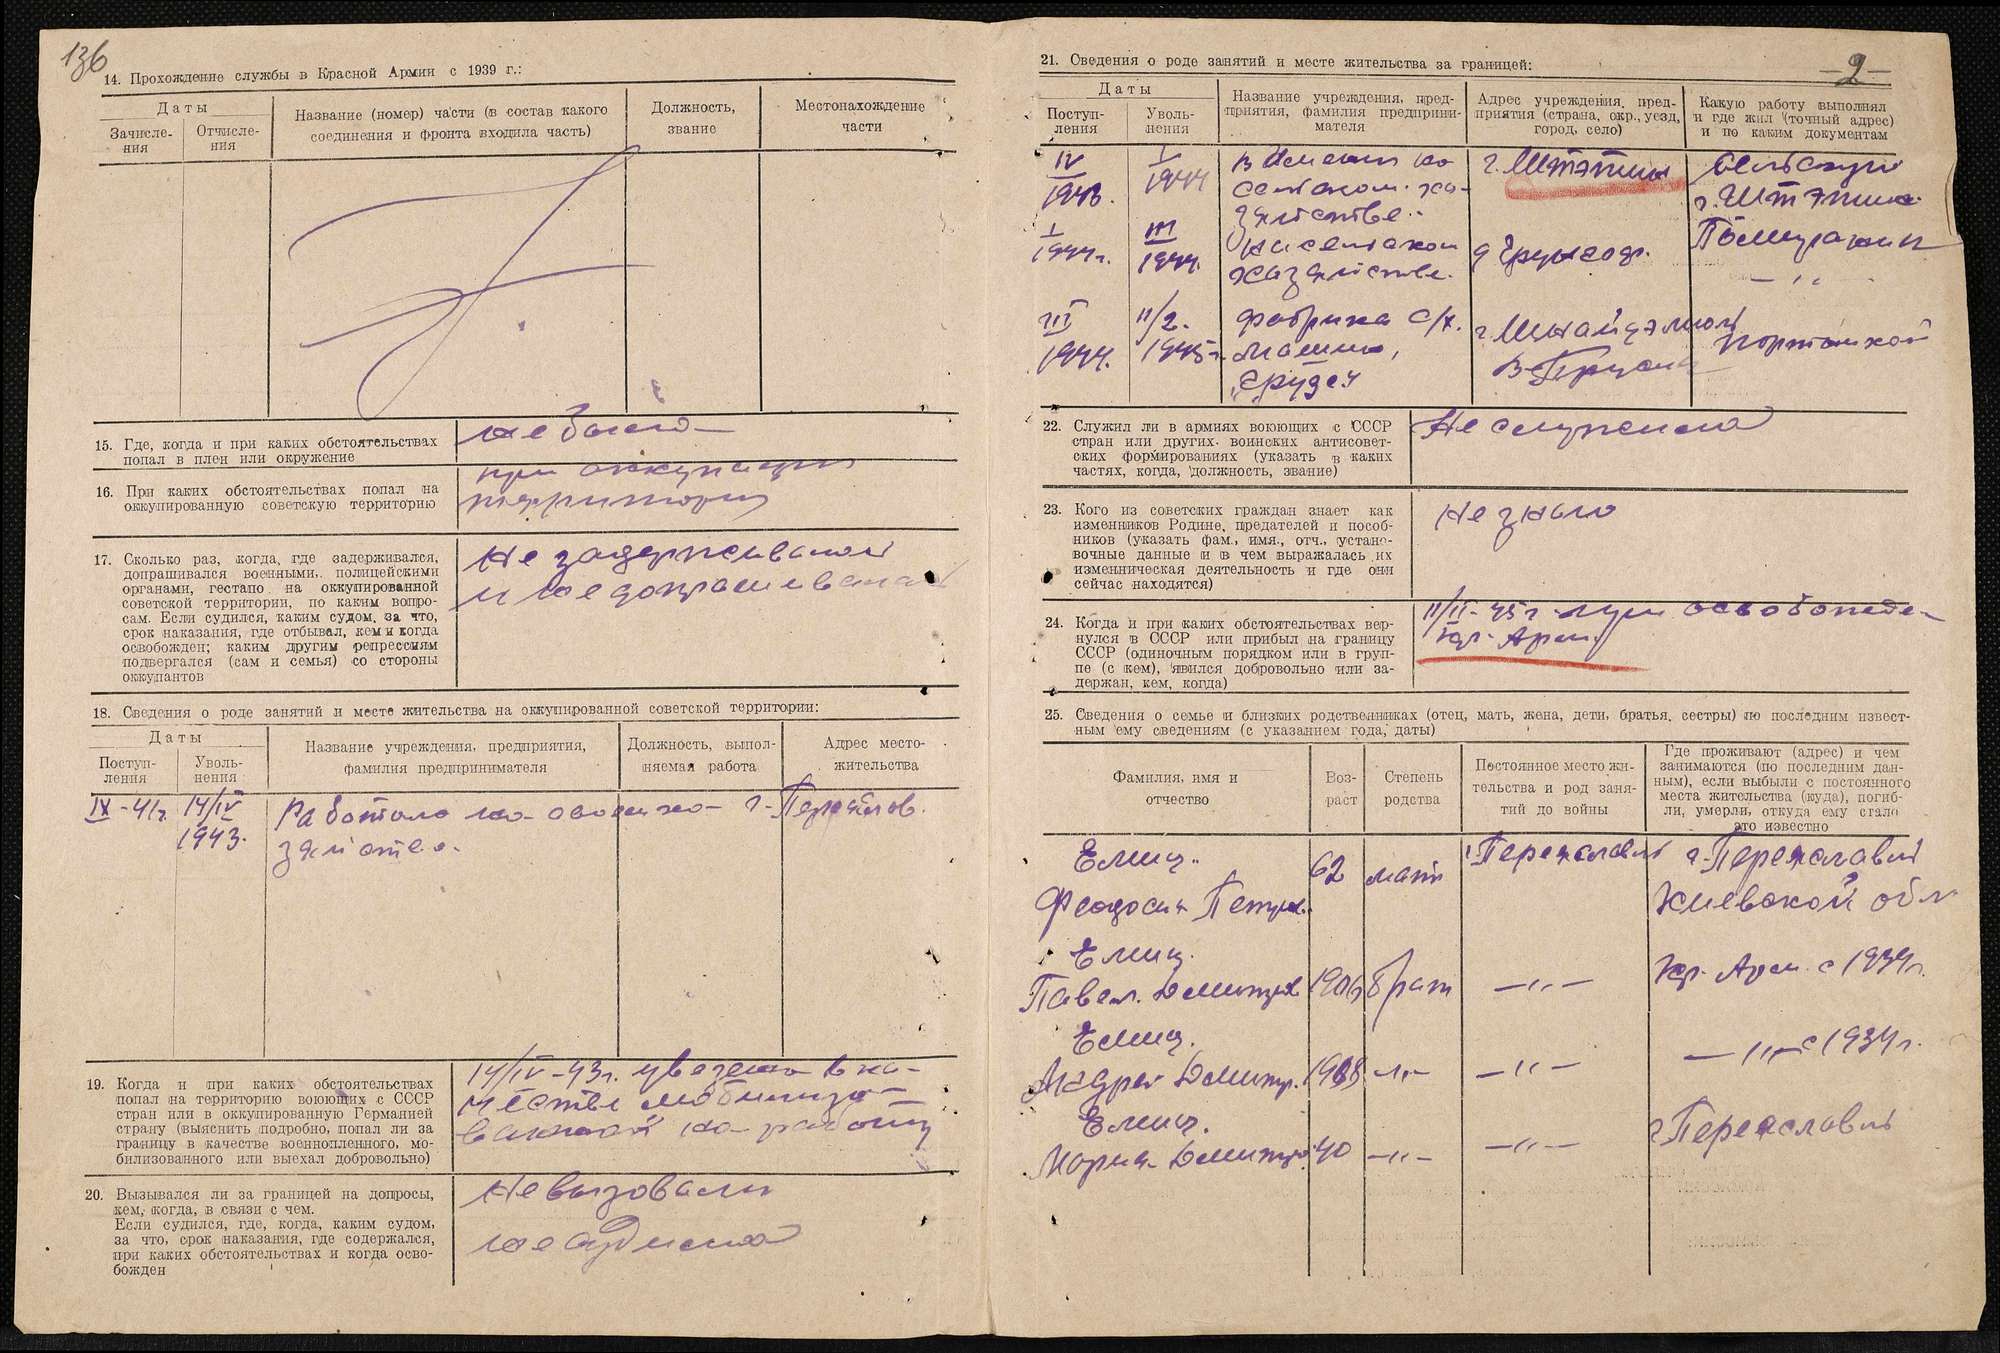 136
14. Прохождение службы в Красной Армии с 1939 г.:
Даты
Зачисле-
ния
Отчисле-
ния
Название (номер) части (в состав какого
соединения и фронта входила часть)
Должность,
звание
Местонахождение
части
15. Где, когда и при каких обстоятельствах
попал в плен или окружение
не была
16. При каких обстоятельствах попал на
оккупированную советскую территорию
при оккупации
территории
17. Сколько раз, когда, где задерживался,
допрашивался военными, полицейскими
органами, гестапо на оккупированной
советской территории, по каким вопро-
сам. Если судился, каким судом, за что,
срок наказания, где отбывал, кем и когда
освобожден; каким другим репрессиям
подвергался (сам и семья) со стороны
оккупантов
не задерживалась
и не допрашивалась
18. Сведения о роде занятий и месте жительства на оккупированной советской территории:
Даты
Поступ-
ления
Уволь-
нения
Название учреждения, предприятия,
фамилия предпринимателя
Должность, выпол-
няемая работа
Адрес место-
жительства
IX-41г. 14/IV
1943.
Работала на своем хо-
зяйстве.
г. Переяслов.
19. Когда и при каких обстоятельствах
попал на территорию воюющих с СССР
стран или в оккупированную Германией
страну (выяснить подробно, попал ли за
границу в качестве военнопленного, мо-
билизованного или выехал добровольно)
14/IV-43г. увезена в ка-
честве мобилизо-
ванной на работу
20. Вызывался ли за границей на допросы,
кем, когда, в связи с чем.
Если судился, где, когда, каким судом,
за что, срок наказания, где содержался,
при каких обстоятельствах и когда осво-
божден
не вызовали
не судилась
2
21. Сведения о роде занятий и месте жительства за границей:
Даты
Поступ-
ления
Уволь-
нения
Название учреждения, пред-
приятия, фамилия предприни-
мателя
Адрес учреждения, пред-
приятия (страна, окр., уезд,
город, село)
Какую работу выполнял
и где жил (точный адрес)
и по каким документам
IV
1943.
I
1944
в имении на
сельском хо-
зяйстве.
г. Штэтин
г. Штэтин
I
1944г.
III
1944.
на сельском
хозяйстве.
— " —
III
1944.
11/2.
1945г.
фабрика с/х.
машин,
22. Служил ли в армиях воюющих с СССР
стран или других воинских антисовет-
ских формированиях (указать в каких
частях, когда, должность, звание)
Не служила
23. Кого из советских граждан знает как
изменников Родине, предателей и пособ-
ников (указать фам., имя., отч., устано-
вочные данные и в чем выражалась их
изменническая деятельность и где они
сейчас находятся)
не знаю
24. Когда и при каких обстоятельствах вер-
нулся в СССР или прибыл на границу
СССР (одиночным порядком или в груп-
пе (с кем), явился добровольно или за-
держан, кем, когда)
11/II-45г. при освобожде-
Кр. Арм.
25. Сведения о семье и близких родственниках (отец, мать, жена, дети, братья, сестры) по последним извест-
ным ему сведениям (с указанием года, даты)
Фамилия, имя и
отчество
Воз-
раст
Степень
родства
Постоянное место жи-
тельства и род заня-
тий до войны
Где проживают (адрес) и чем
занимаются (по последним дан-
ным), если выбыли с постоянного
места жительства (куда), погиб-
ли, умерли, откуда ему стало
это известно
Емец.
Феодосия Петров. 62 мать г. Переяславль г. Переяславль
Киевской обл
Емец.
Павел. Дмитров 1906г брат — " — Кр. Арм. с 1939г.
Емец.
Андрей Дмитр. — " — — " — — " — с 1939г.
Емец.
Мария Дмитров. 40 — " — — " — г Переяславль